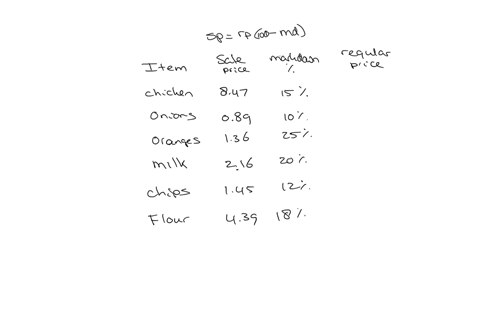 sp = rp(100 - md)
Item Sale price markdown % regular price
chicken 8.47 15%
Onions 0.89 10%
Oranges 1.36 25%
milk 2.16 20%
chips 1.45 12%
Flour 4.39 18%